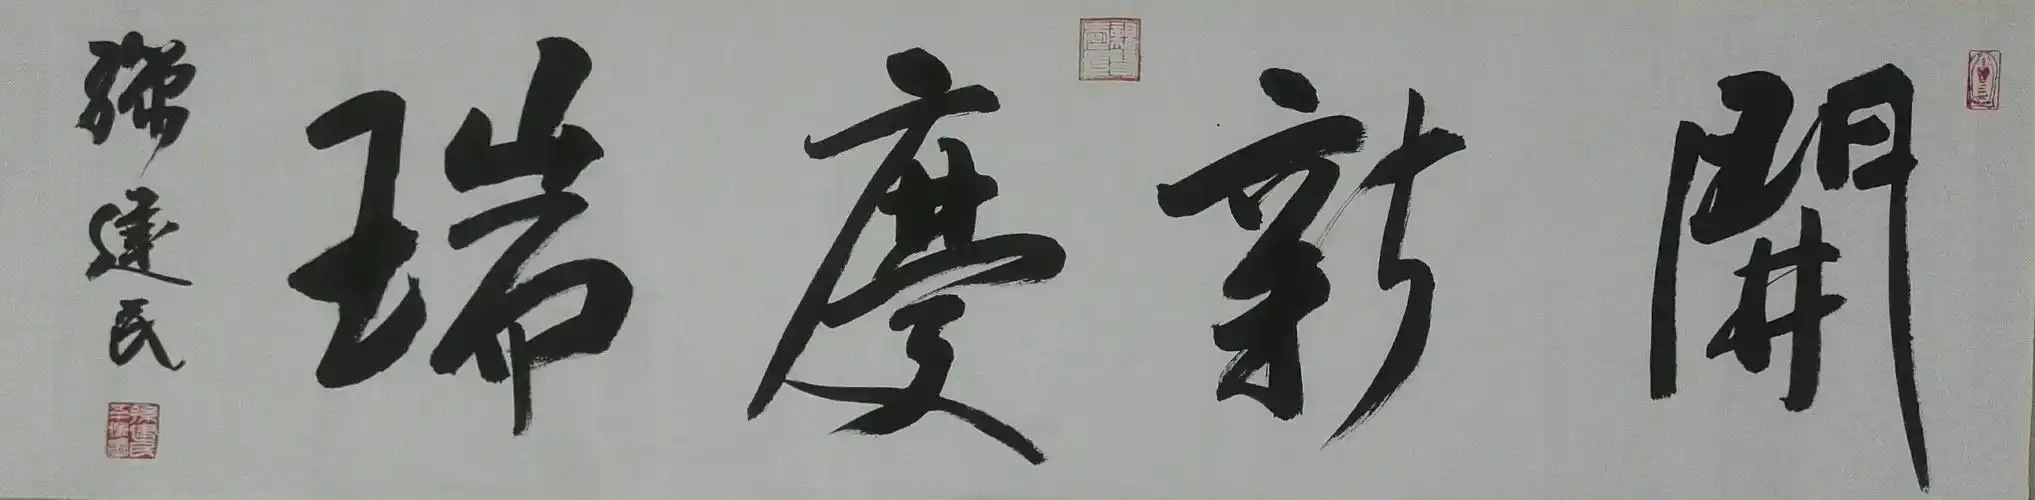 開新慶瑞
孫建民